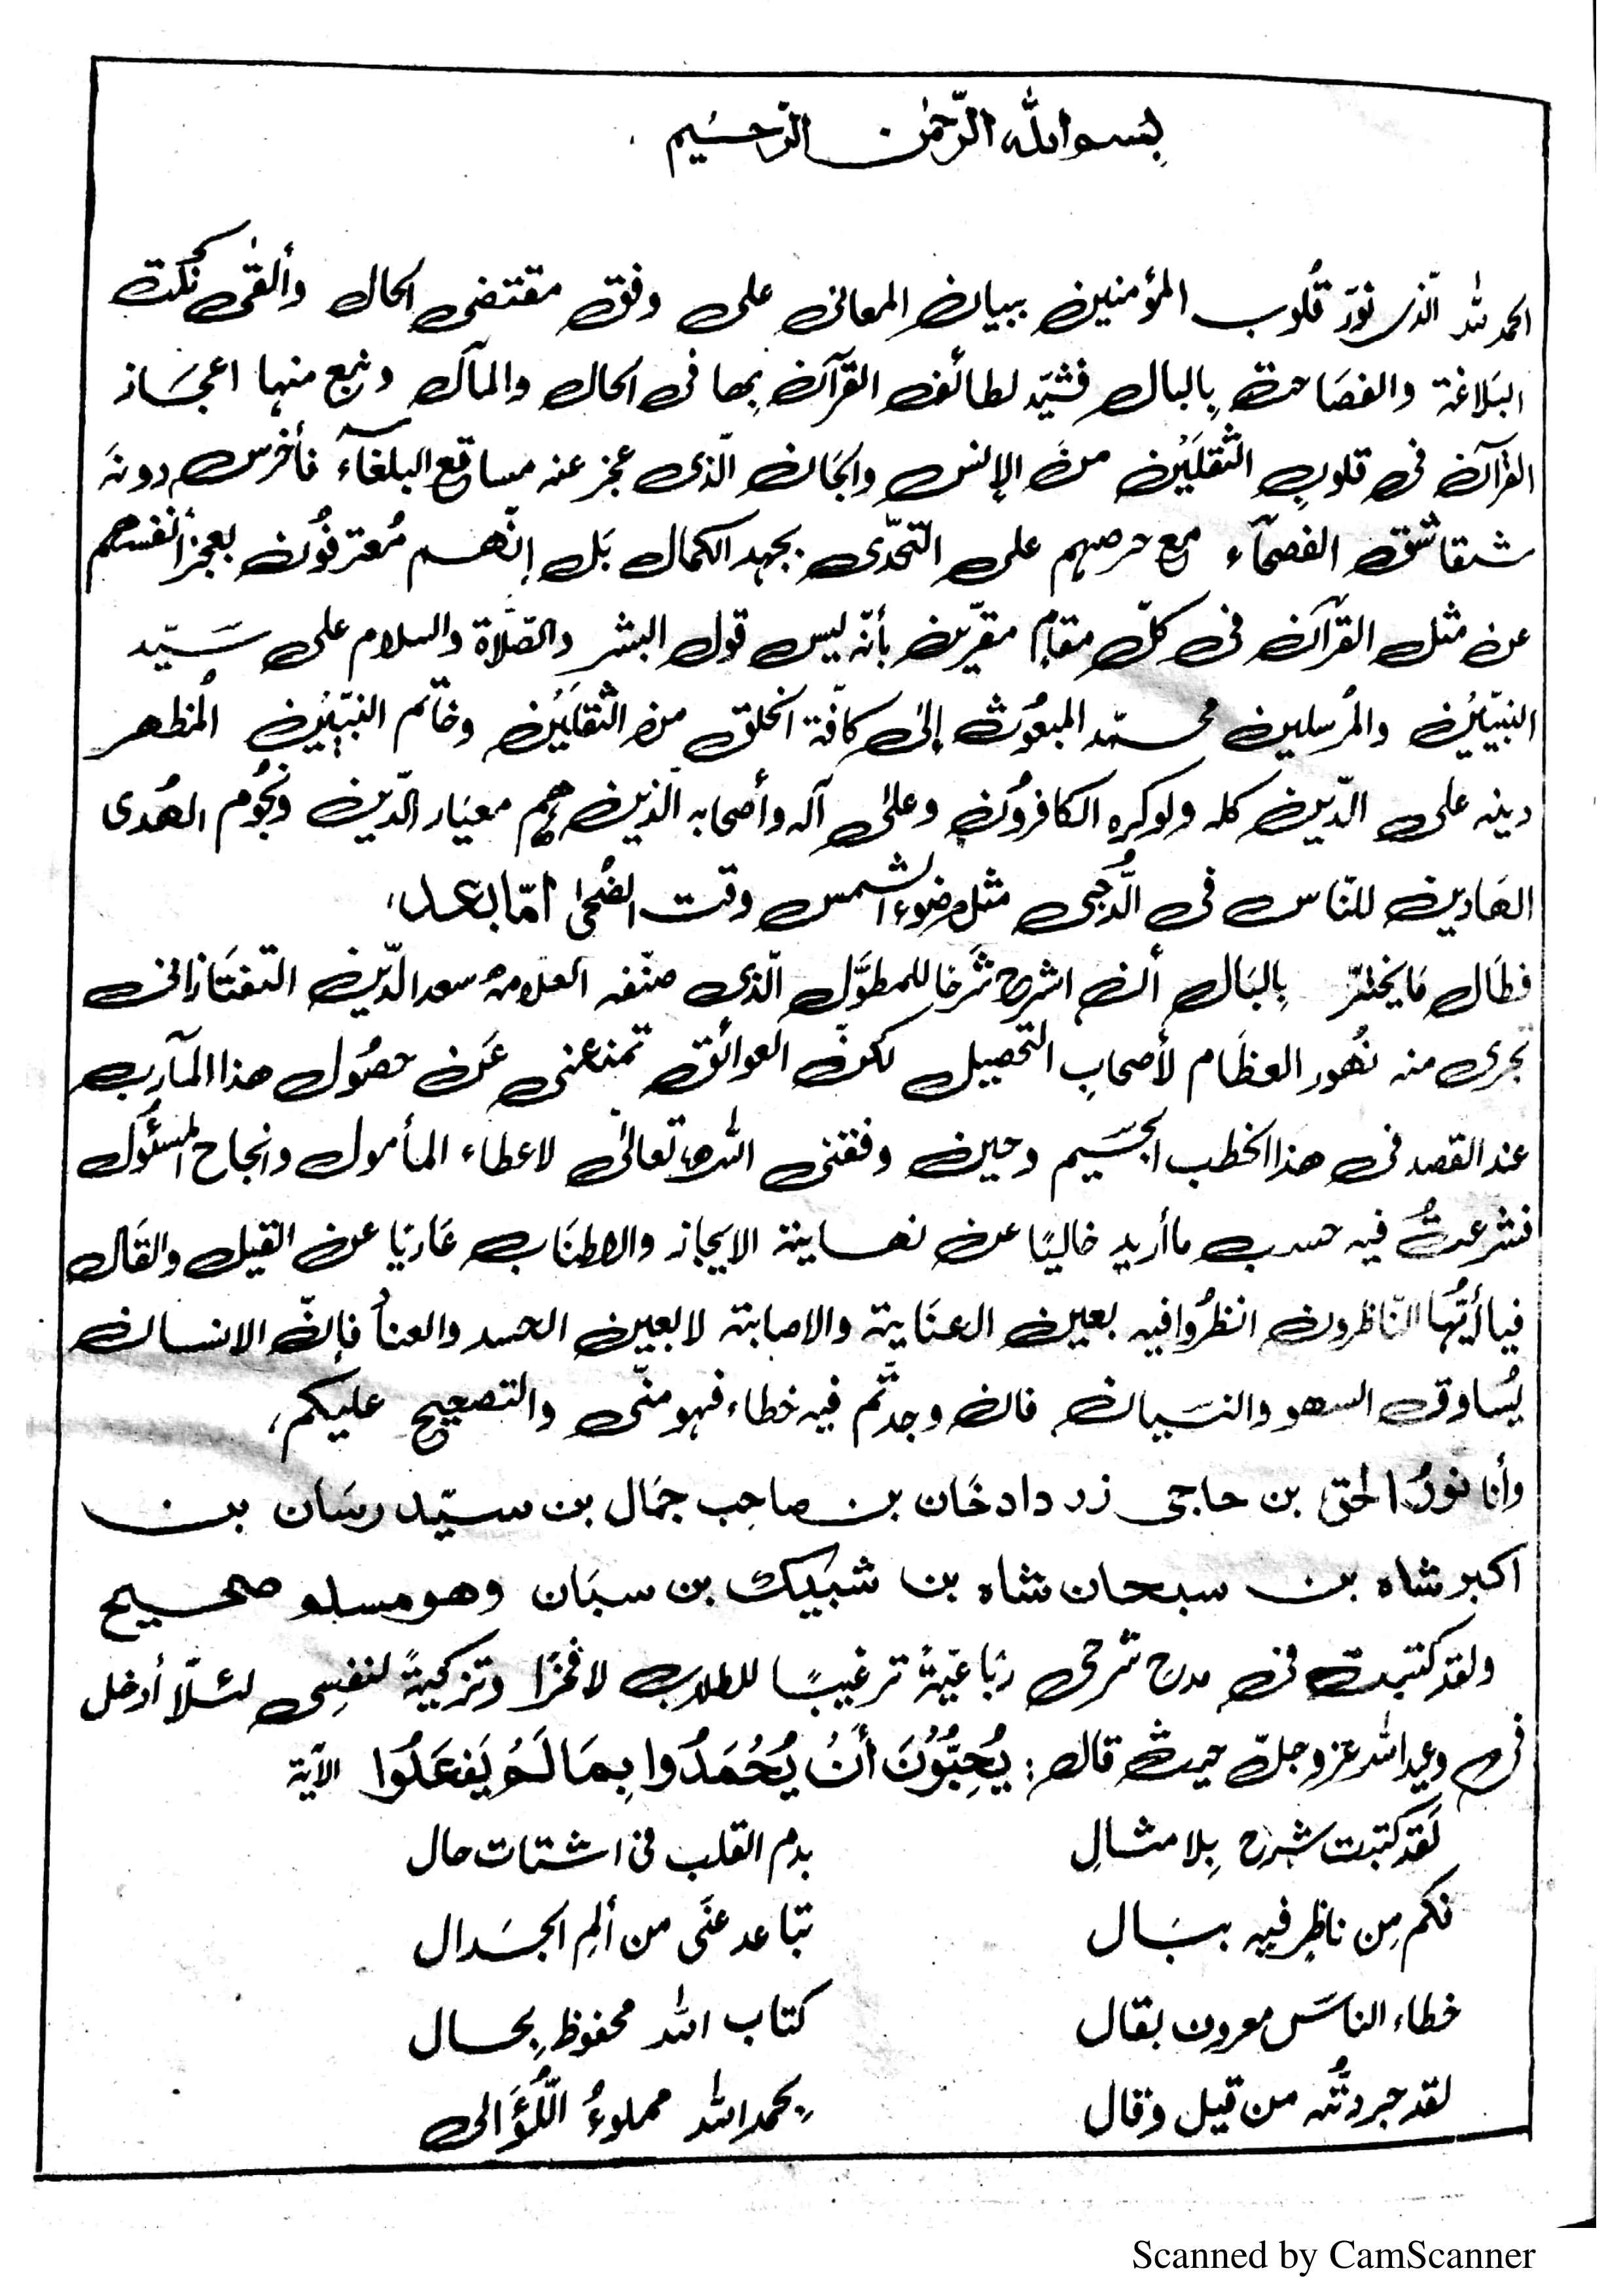 بسم الله الرّحمٰن الرّحيم
الحمد لله الّذى نوّر قُلُوب المؤمنين ببيان المعانى على وفق مقتضى الحال وألقٰى نُكت
البَلاغة والفصَاحة بِالبال فشيّد لطائف القرآن بها فى الحال والمآل ونبع منها اعجَاز
القرآن فى قلوبِ الثّقلَيْن منَ الإنس والجَان الّذى عجز عنه مساقع البلغآء فأخرس دونهَ
شقاشق الفصحآء مع حرصهم على التّحدّى بجهد الكمال بَل إنّهم مُعترفُون بعجز أنفسهم
عن مثل القرآن فى كلّ مقامٍ مقرّين بأنّه ليس قول البشر والصّلاة والسلام على سَيّد
النبيّيْن والمُرسلين محمّد المبعُوث إلىٰ كافّة الخلق من الثقلَيْن وخاتَم النبيّيْن المُظهر
دينه على الدّين كله ولوكره الكافرُون وعلىٰ آله وأصحابه الّذين هم معيَار الدّين ونجُوم الهُدى
الهَادين للنّاس فى الدُّجى مثل ضوء الشمس وقت الضُحىٰ امّا بعد،
فطَال مَا يختلز بِالبَال أن اشرح شَرحًا للمطوَّل الّذى صنّفه العلامة سعد الدّين التفتَازانى
تجرى منه نهُور العظَام لأصحابِ التحصيل لكنّ العوائق تمنعنى عَن حصُول هذا المآرب
عند القصد فى هذا الخطب الجسَيم وحين وفقنى الله تعالىٰ لاعطاء المأمول وانجاح المسئُول
فشرعتُ فيه حسب ما أريد خاليًا عن نهاية الايجاز والاطنَاب عَاريًا عن القيل والقَال
فيا أيّهَا النّاظرون انظرُوا فيه بعين العنَاية والاصابة لا بعين الحسد والعنأ فإنّ الانسان
يُساوق السهو والنسَيان فان وجدتُّم فيه خطاء فهو منّى والتصحيح عليكم،
وأنا نورُ الحق بن حاجى زر داد خَان بن صاحِب جمَال بن سيّد رسَان بن
اكبر شاه بن سبحان شاه بن شبَيك بن سبَان وهو مسلم صحيح
ولقد كتبت فى مدح شرحى ربَاعيّةً ترغيبًا للطلاب لا فخرًا وتزكيةً لنفسِى لئلّا أدخل
فى وعيد الله عز وجلّ حيث قال: يُحِبُّوْنَ أَنْ يُحْمَدُوا بِمَا لَمْ يَفعَلُوا الآية
لَقد كتبت شرح بِلا مثالِ بدم القلب فى اشتات حال
فكم مِن ناظرٍ فيه ببَال تبَاعد عنّى من ألمِ الجَدال
خطاء الناسَ معرون بقال كتاب الله محفوظِ بحال
لقد جردتُّه من قيل وقال بِحمد الله مملوءُ اللُّؤَالى
Scanned by CamScanner